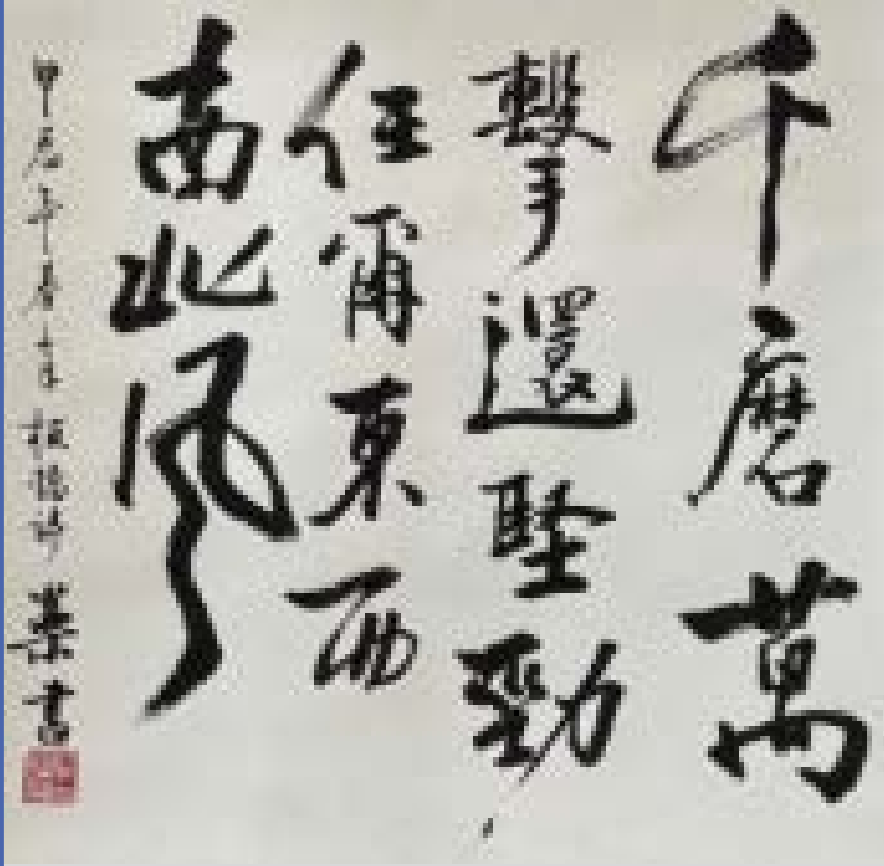 千磨萬
擊還堅勁
任爾東西
南北風
甲辰年春 板橋詩 葉書